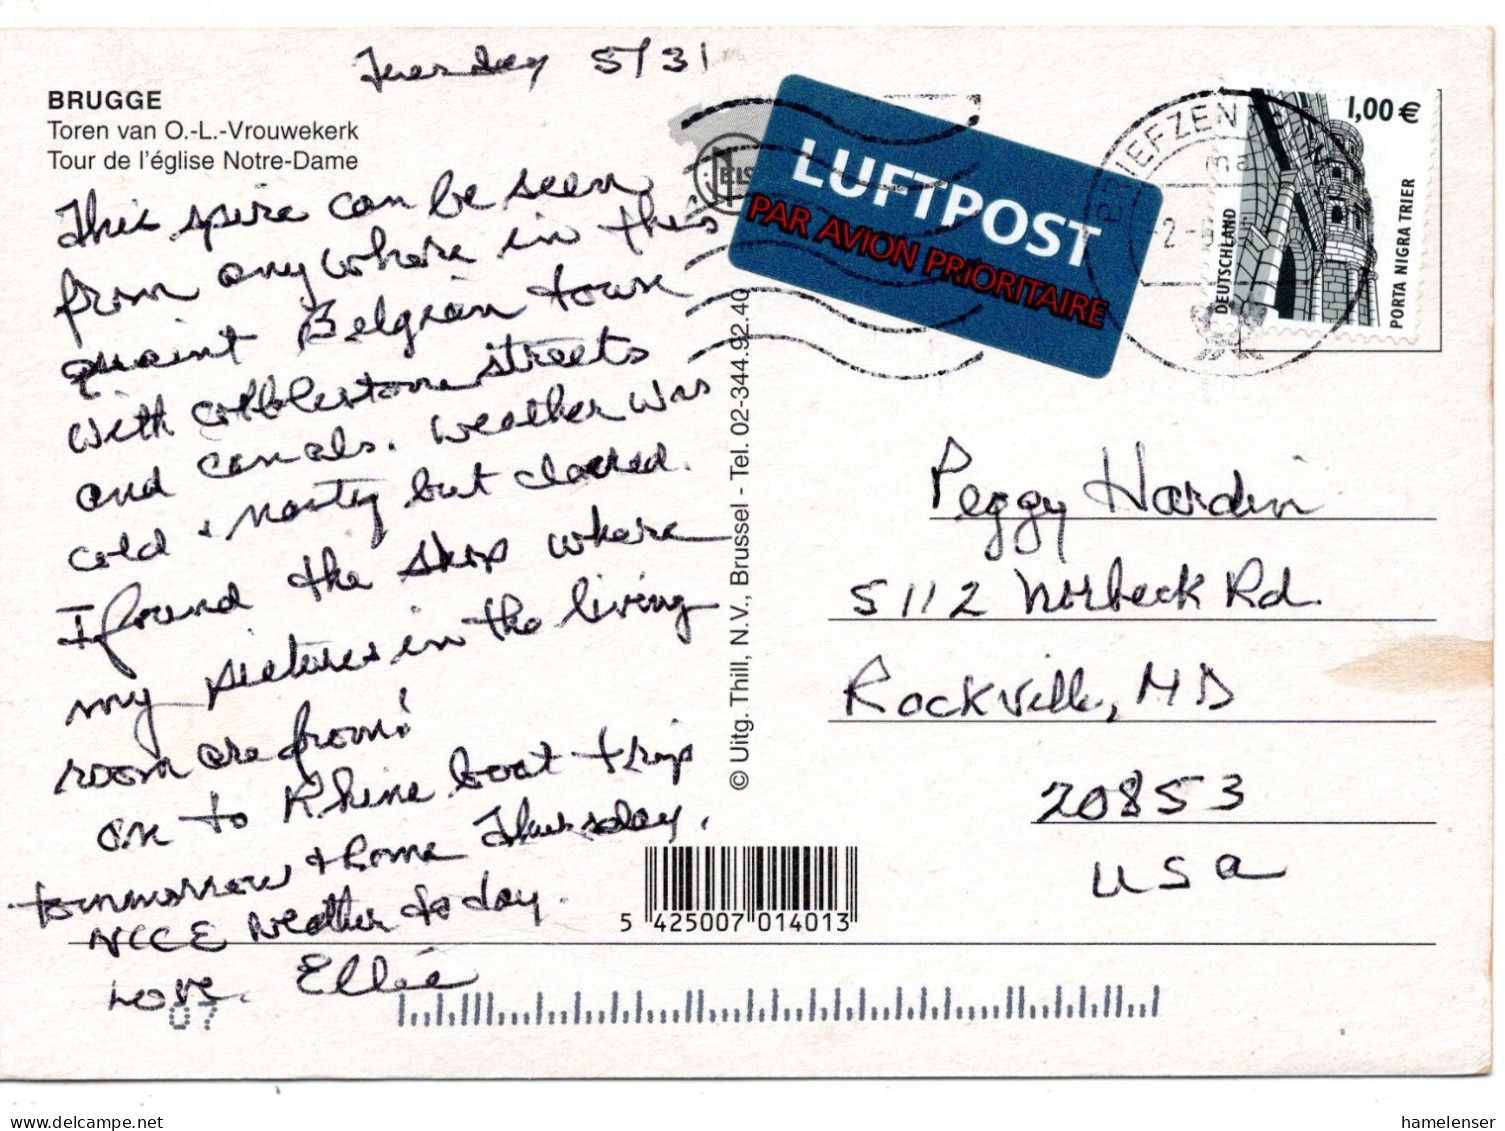 Tuesday 5/31
BRUGGE
Toren van O.-L.-Vrouwekerk
Tour de l'église Notre-Dame
This spire can be seen
from anywhere in this
quaint Belgian town
with cobblestone streets
and canals. Weather was
cold + nasty but cleared.
I found the shop where
my pictures in the living
room are from!
on to Rhine boat trip
tommorrow + home Thursday.
NICE weather today.
Love. Ellie
07
© Uitg. Thill, N.V., Brussel - Tel. 02-344.92.40
LUFTPOST
PAR AVION PRIORITAIRE
BRIEFZEN
1,00 €
DEUTSCHLAND
PORTA NIGRA TRIER
Peggy Hardin
5112 Norbeck Rd.
Rockville, MD
20853
USA
5 425007 014013
hamelenser